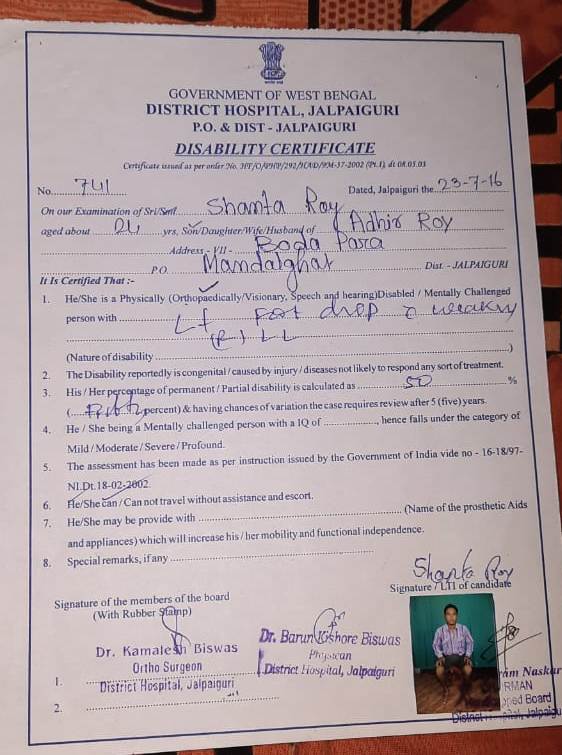 GOVERNMENT OF WEST BENGAL
DISTRICT HOSPITAL, JALPAIGURI
P.O. & DIST - JALPAIGURI
DISABILITY CERTIFICATE
Certificate issued as per order No. HF/O/PHP/292/HAD/9M-37-2002 (Pt.1), dt 08.05.03
No. 741 Dated, Jalpaiguri the 23-7-16
On our Examination of Sri/Smt. Shanta Roy
aged about 24 yrs, Son/Daughter/Wife/Husband of Adhir Roy
Address - Vill - Boda Para
P.O. Mandalghat Dist. - JALPAIGURI
It Is Certified That :-
1. He/She is a Physically (Orthopaedically/Visionary, Speech and hearing)Disabled / Mentally Challenged
person with Lt Foot drop weakn
(R) LL
(Nature of disability )
2. The Disability reportedly is congenital / caused by injury / diseases not likely to respond any sort of treatment.
3. His / Her percentage of permanent / Partial disability is calculated as 50 %
(Fifty percent) & having chances of variation the case requires review after 5 (five) years.
4. He / She being a Mentally challenged person with a IQ of , hence falls under the category of
Mild / Moderate / Severe / Profound.
5. The assessment has been made as per instruction issued by the Government of India vide no - 16-18/97-
NI.Dt.18-02-2002.
6. He/She can / Can not travel without assistance and escort.
7. He/She may be provide with (Name of the prosthetic Aids
and appliances) which will increase his / her mobility and functional independence.
8. Special remarks, if any
Shanta Roy
Signature / LTI of candidate
Signature of the members of the board
(With Rubber Stamp)
Dr. Kamalesh Biswas
Ortho Surgeon
1. District Hospital, Jalpaiguri
2.
Dr. Barun Kishore Biswas
Physician
District Hospital, Jalpaiguri
ram Naskar
RMAN
pped Board
District Hospital, Jalpaigu